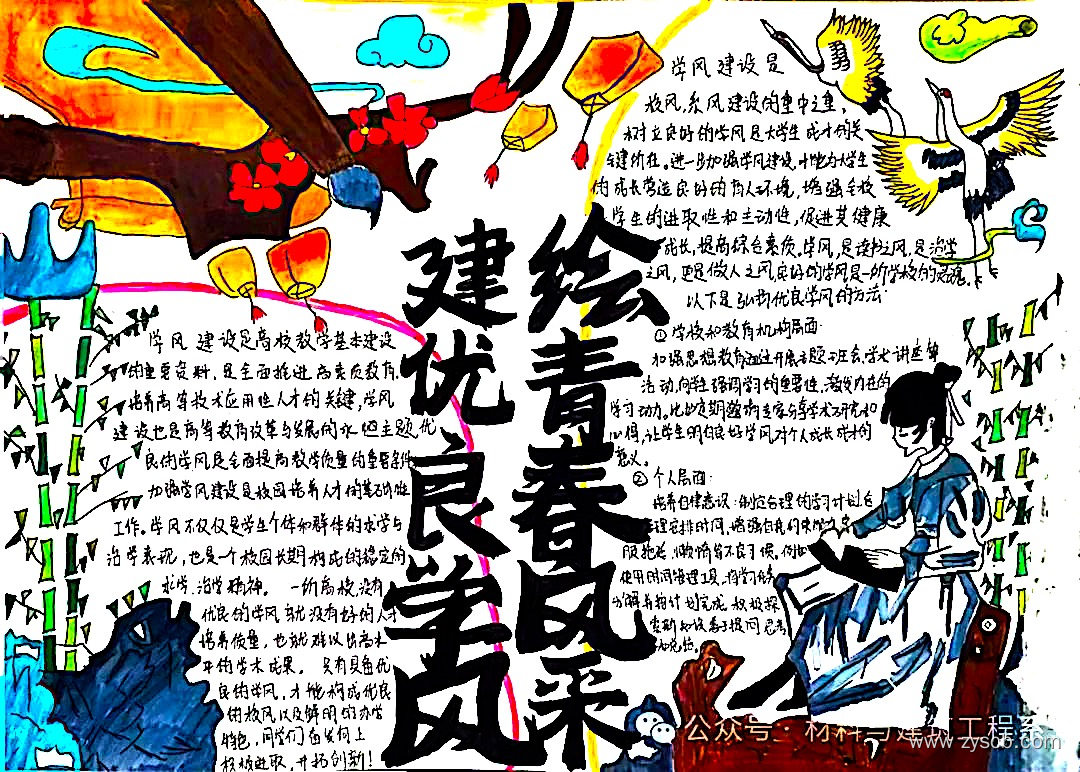 建优良学风
绘青春风采
学风建设是高校教学基本建设
的重要资料，是全面推进高素质教育，
培养高等技术应用性人才的关键，学风
建设也是高等教育改革与发展的永恒主题，优
良的学风是全面提高教学质量的重要条件
加强学风建设是校园培养人才的基础性
工作。学风不仅仅是学生个体和群体的求学与
治学表现，也是一个校园长期构成的稳定的
求学、治学精神。一所高校没有
优良的学风，就没有好的人才
培养质量，也就难以出高水
平的学术成果。只有具备优
良的学风，才能构成优良
的校风以及鲜明的办学
特色，同学们在学问上
积极进取，开拓创新！
学风建设是
校风，系风建设的重中之重，
树立良好的学风是大学生成才的关
键所在。进一步加强学风建设，才能为大学生
的成长营造良好的育人环境，增强全校
学生的进取性和主动性，促进其健康
成长，提高综合素质。学风，是读书之风，是治学
之风，更是做人之风，良好的学风是一所学校的灵魂。
以下是弘扬优良学风的方法：
①学校和教育机构层面：
加强思想教育：通过开展主题班会、学术讲座等
活动，向学生强调学习的重要性，激发内在的
学习动力。比如定期邀请专家分享学术研究和
心得，让学生明白良好学风对个人成长成才的
意义。
②个人层面：
培养自律意识：制定合理的学习计划，
合理安排时间，增强自我约束能力，
服拖延、懒惰等不良习惯。例如
使用时间管理工具，将学习任务
分解并按计划完成。积极探
索新知识，善于提问、思考
公众号·材料与建筑工程系
www.zyscb.com